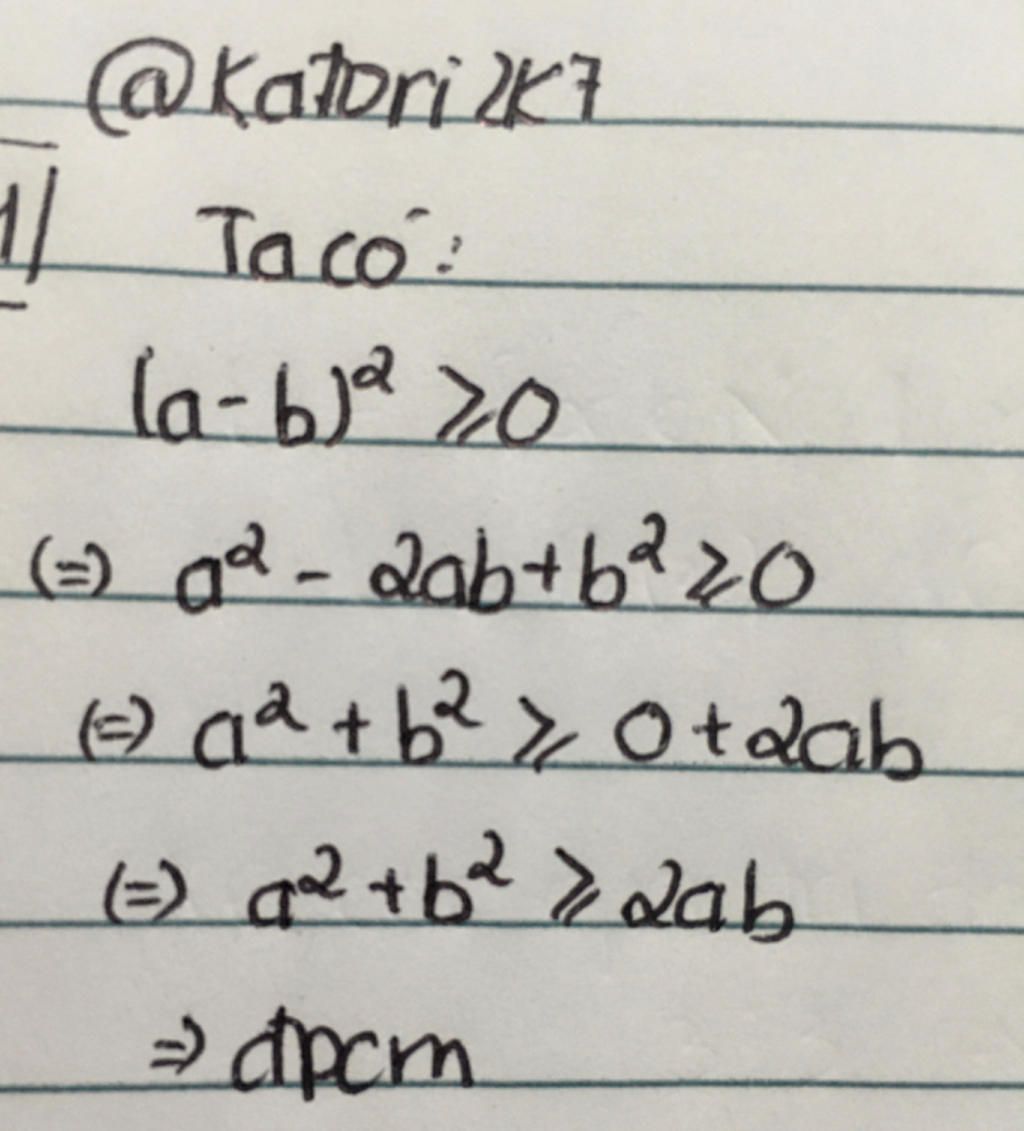 @Katori2K7
1/ Ta có:
(a-b)² ⩾0
(=) a² - 2ab+b² ⩾0
(=) a² + b² ⩾ 0+2ab
(=) a² +b² ⩾ 2ab
=) đpcm